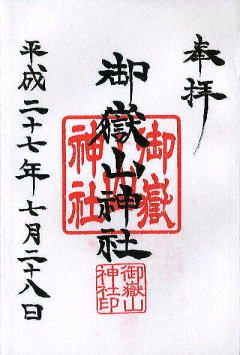 奉拝
御嶽山神社
御嶽
神社
御嶽山
神社印
平成二十七年七月二十八日